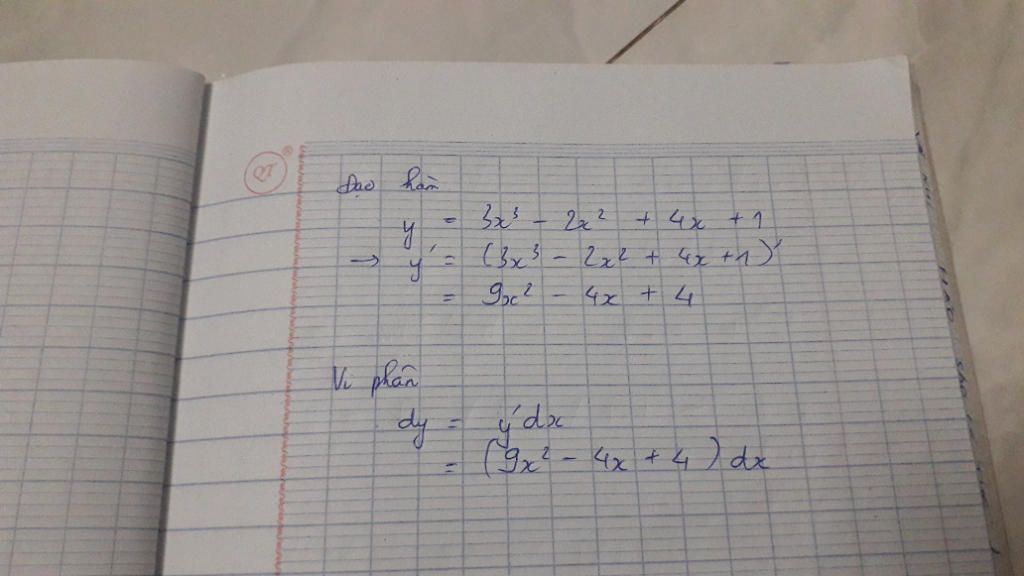 Đạo hàm
y = 3x³ - 2x² + 4x + 1
→ y' = (3x³ - 2x² + 4x + 1)'
= 9x² - 4x + 4
Vi phân
dy = y'dx
= (9x² - 4x + 4) dx